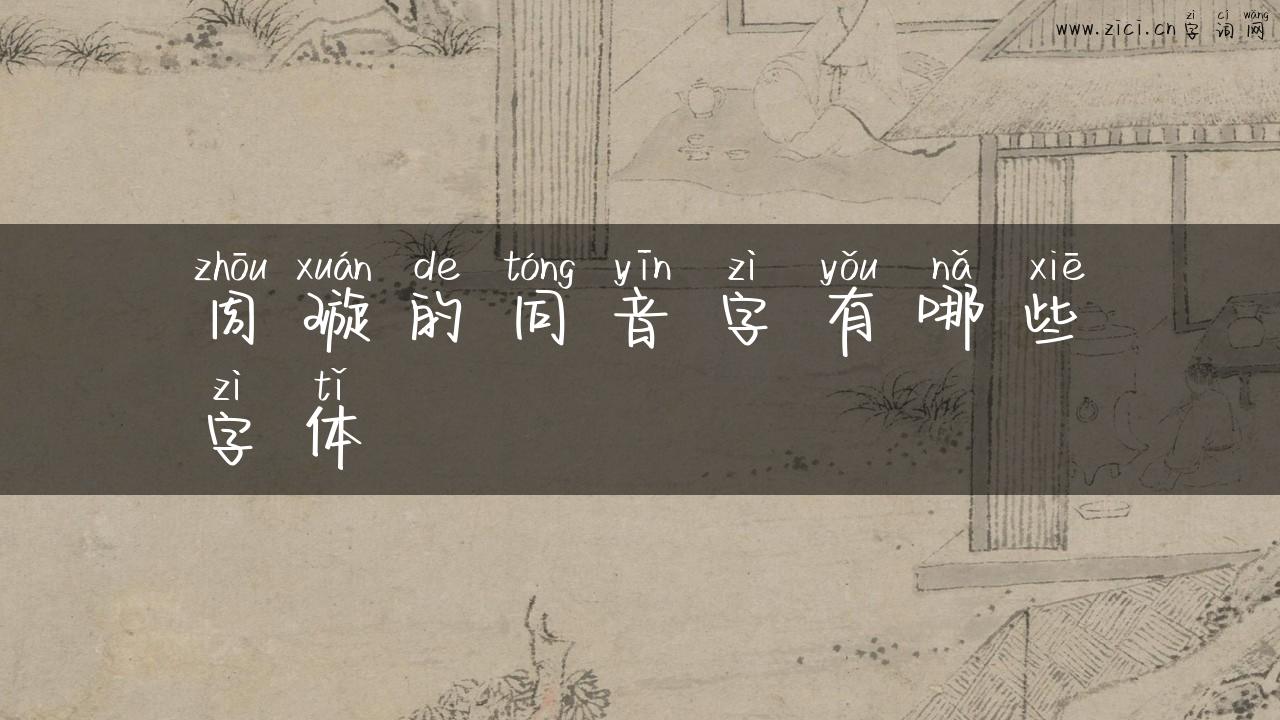 zì cí wǎng
www.zici.cn 字 词 网
zhōu xuán de tóng yīn zì yǒu nǎ xiē
周 璇 的 同 音 字 有 哪 些
zì tǐ
字 体